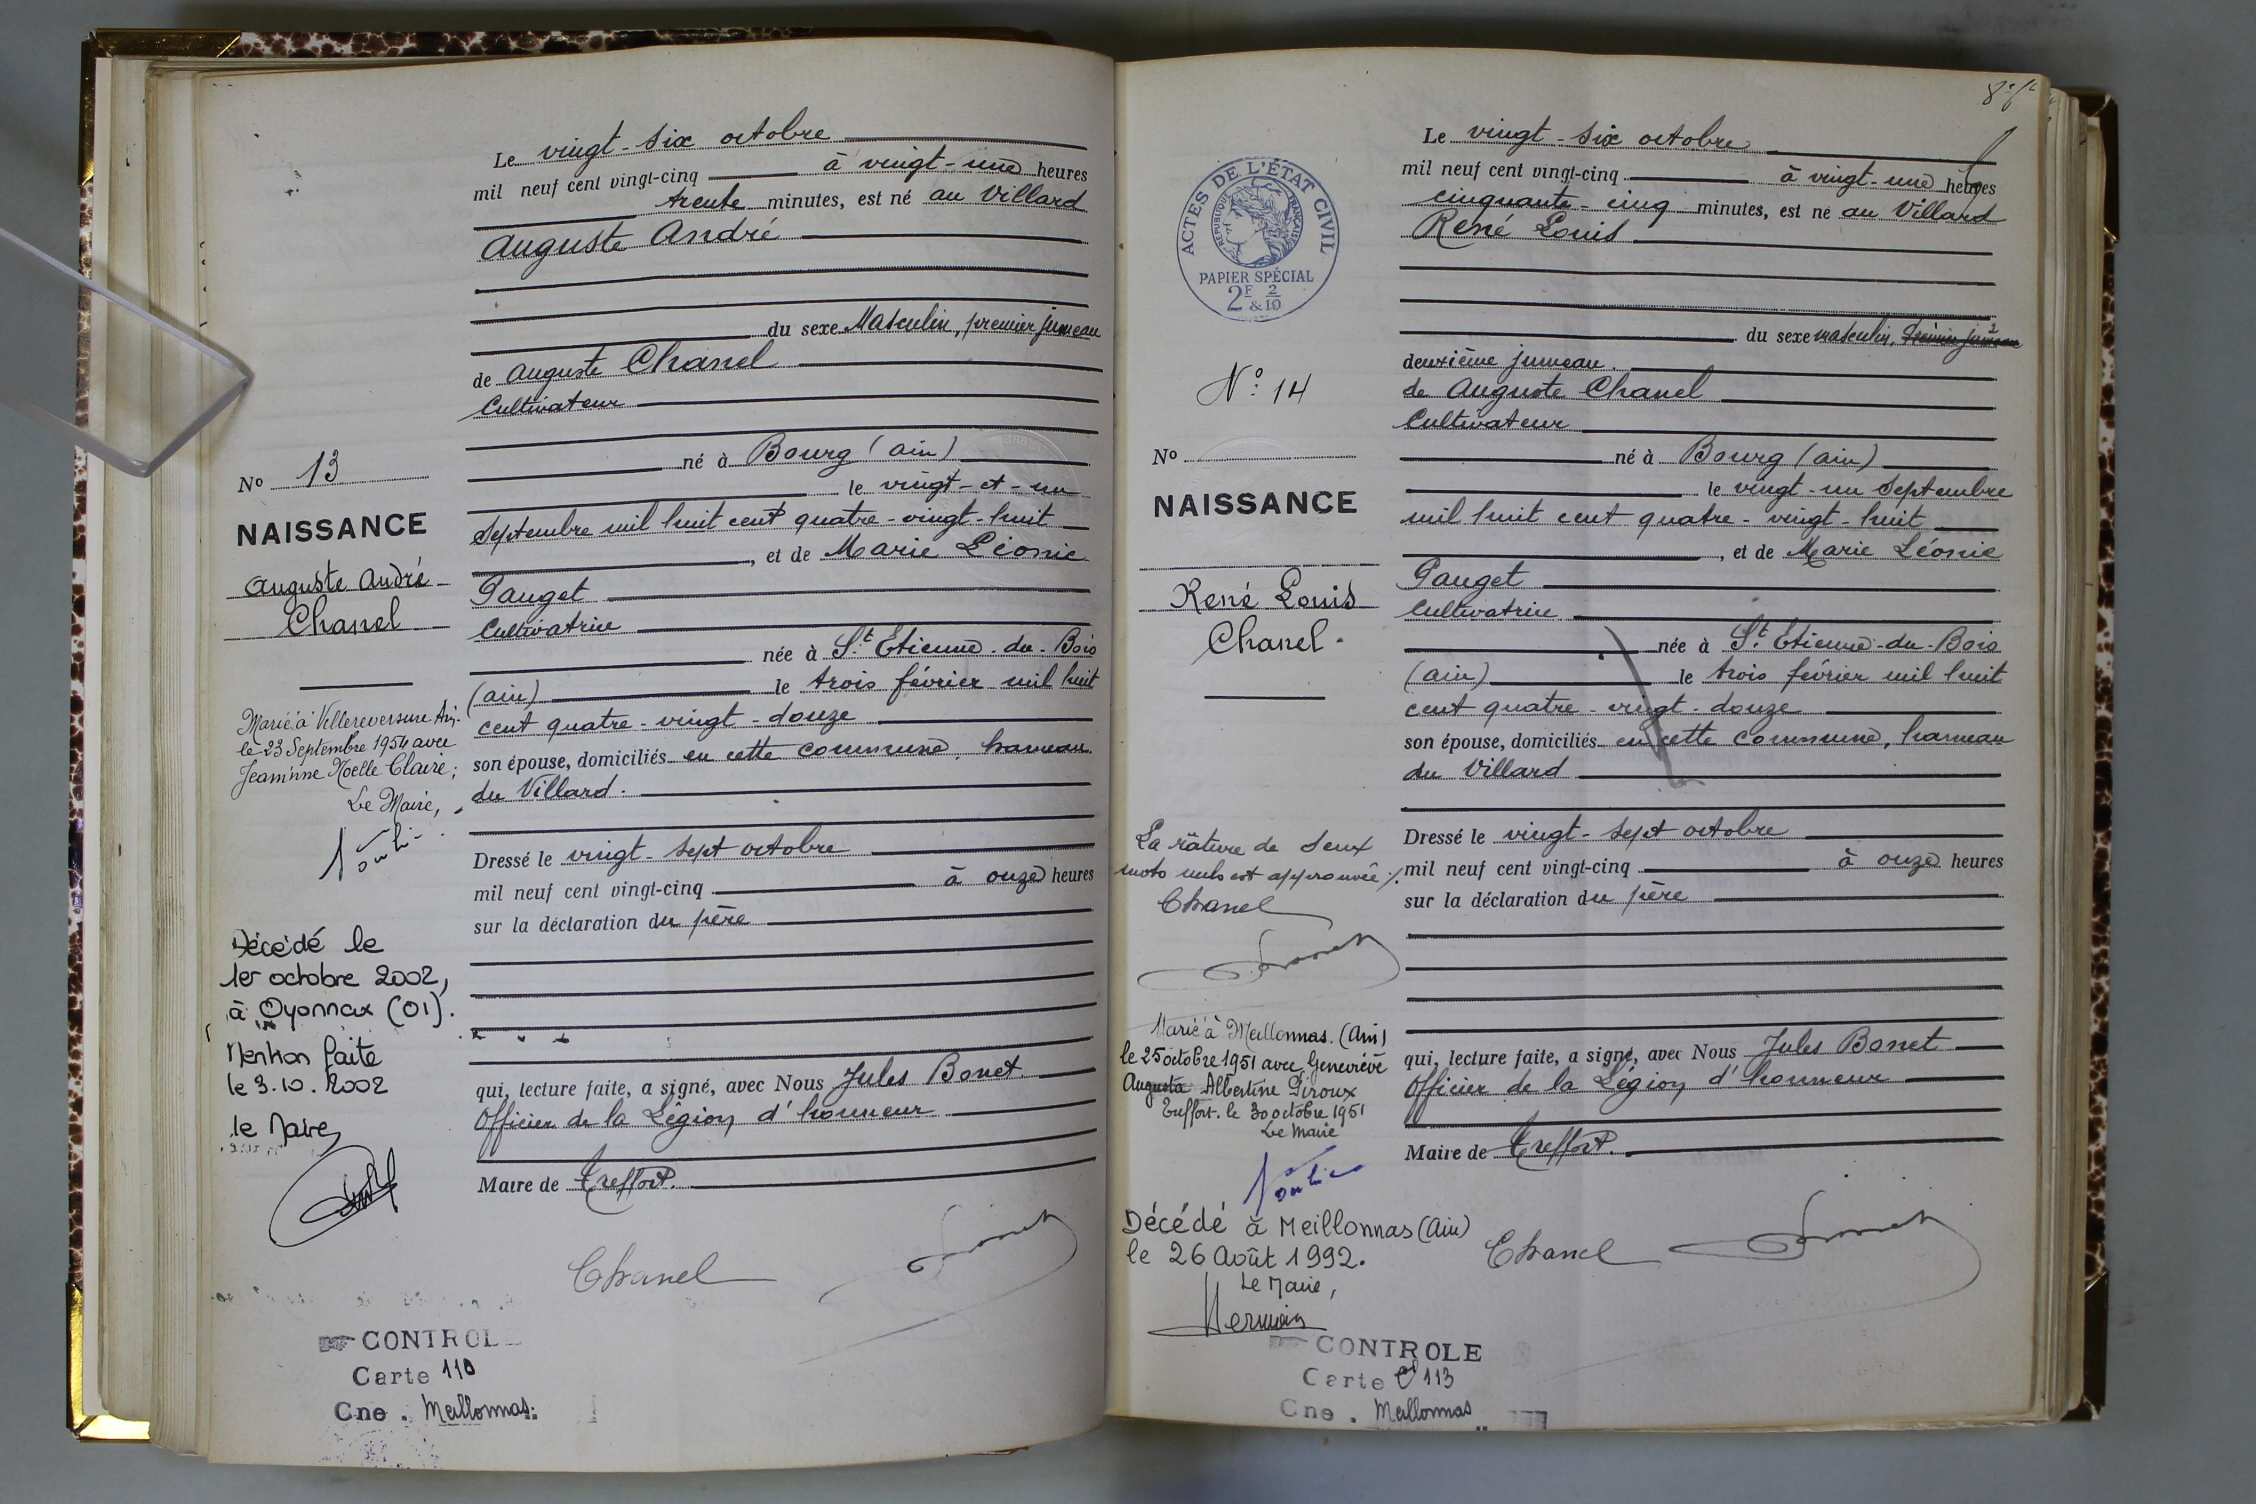 Le vingt-six octobre
mil neuf cent vingt-cinq à vingt-une heures
trente minutes, est né au Villard
Auguste André
du sexe Masculin, premier jumeau
de Auguste Chanel
Cultivateur
né à Bourg (Ain)
le vingt-et-un
Septembre mil huit cent quatre-vingt-huit
, et de Marie Léonie
Pauget
Cultivatrice
née à St. Etienne-du-Bois
(Ain) le trois février mil huit
cent quatre-vingt-douze
son épouse, domiciliés en cette commune, hameau
du Villard.
Dressé le vingt-sept octobre
mil neuf cent vingt-cinq à onze heures
sur la déclaration du père
qui, lecture faite, a signé, avec Nous Jules Bonet
Officier de la Légion d'honneur
Maire de Treffort.
Chanel
No 13
NAISSANCE
Auguste André
Chanel
Marié à Villereversure Ain.
le 23 Septembre 1954 avec
Jeannine Noelle Claire;
Le Maire,
Décédé le
1er octobre 2002,
à Oyonnax (01).
Mention faite
le 3.10.2002
le Maire
CONTROL
Carte 110
Cne. Meillonnas.
Le vingt-six octobre
mil neuf cent vingt-cinq à vingt-une heures
cinquante-cinq minutes, est né au Villard
René Louis
du sexe masculin, premier jumeau
deuxième jumeau.
de Auguste Chanel
Cultivateur
né à Bourg (Ain)
le vingt-un Septembre
mil huit cent quatre-vingt-huit
, et de Marie Léonie
Pauget
Cultivatrice
née à St. Etienne-du-Bois
(Ain) le trois février mil huit
cent quatre-vingt-douze
son épouse, domiciliés en cette commune, hameau
du Villard
Dressé le vingt-sept octobre
mil neuf cent vingt-cinq à onze heures
sur la déclaration du père
qui, lecture faite, a signé, avec Nous Jules Bonet
Officier de la Légion d'honneur
Maire de Treffort.
Chanel
ACTES DE L'ÉTAT CIVIL
RÉPUBLIQUE FRANÇAISE
PAPIER SPÉCIAL
2F & 2/10
No: 14
No
NAISSANCE
René Louis
Chanel.
La râture de deux
mots nuls est approuvée
Chanel
Marié à Meillonnas. (Ain)
le 25 octobre 1951 avec Geneviève
Augusta Albertine Piroux
Treffort. le 30 octobre 1951
Le Maire
Décédé à Meillonnas (Ain)
le 26 Août 1992.
Le Maire,
CONTROLE
Carte 113
Cne. Meillonnas